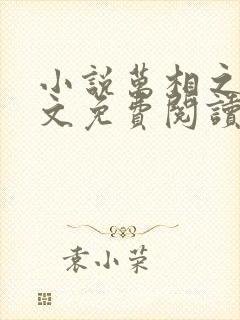 小説萬相之
文免費閱讀
袁小荣